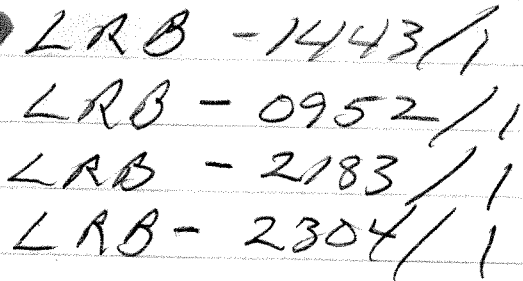 LRB - 1443/1
LRB - 0952/1
LRB - 2183/1
LRB - 2304/1